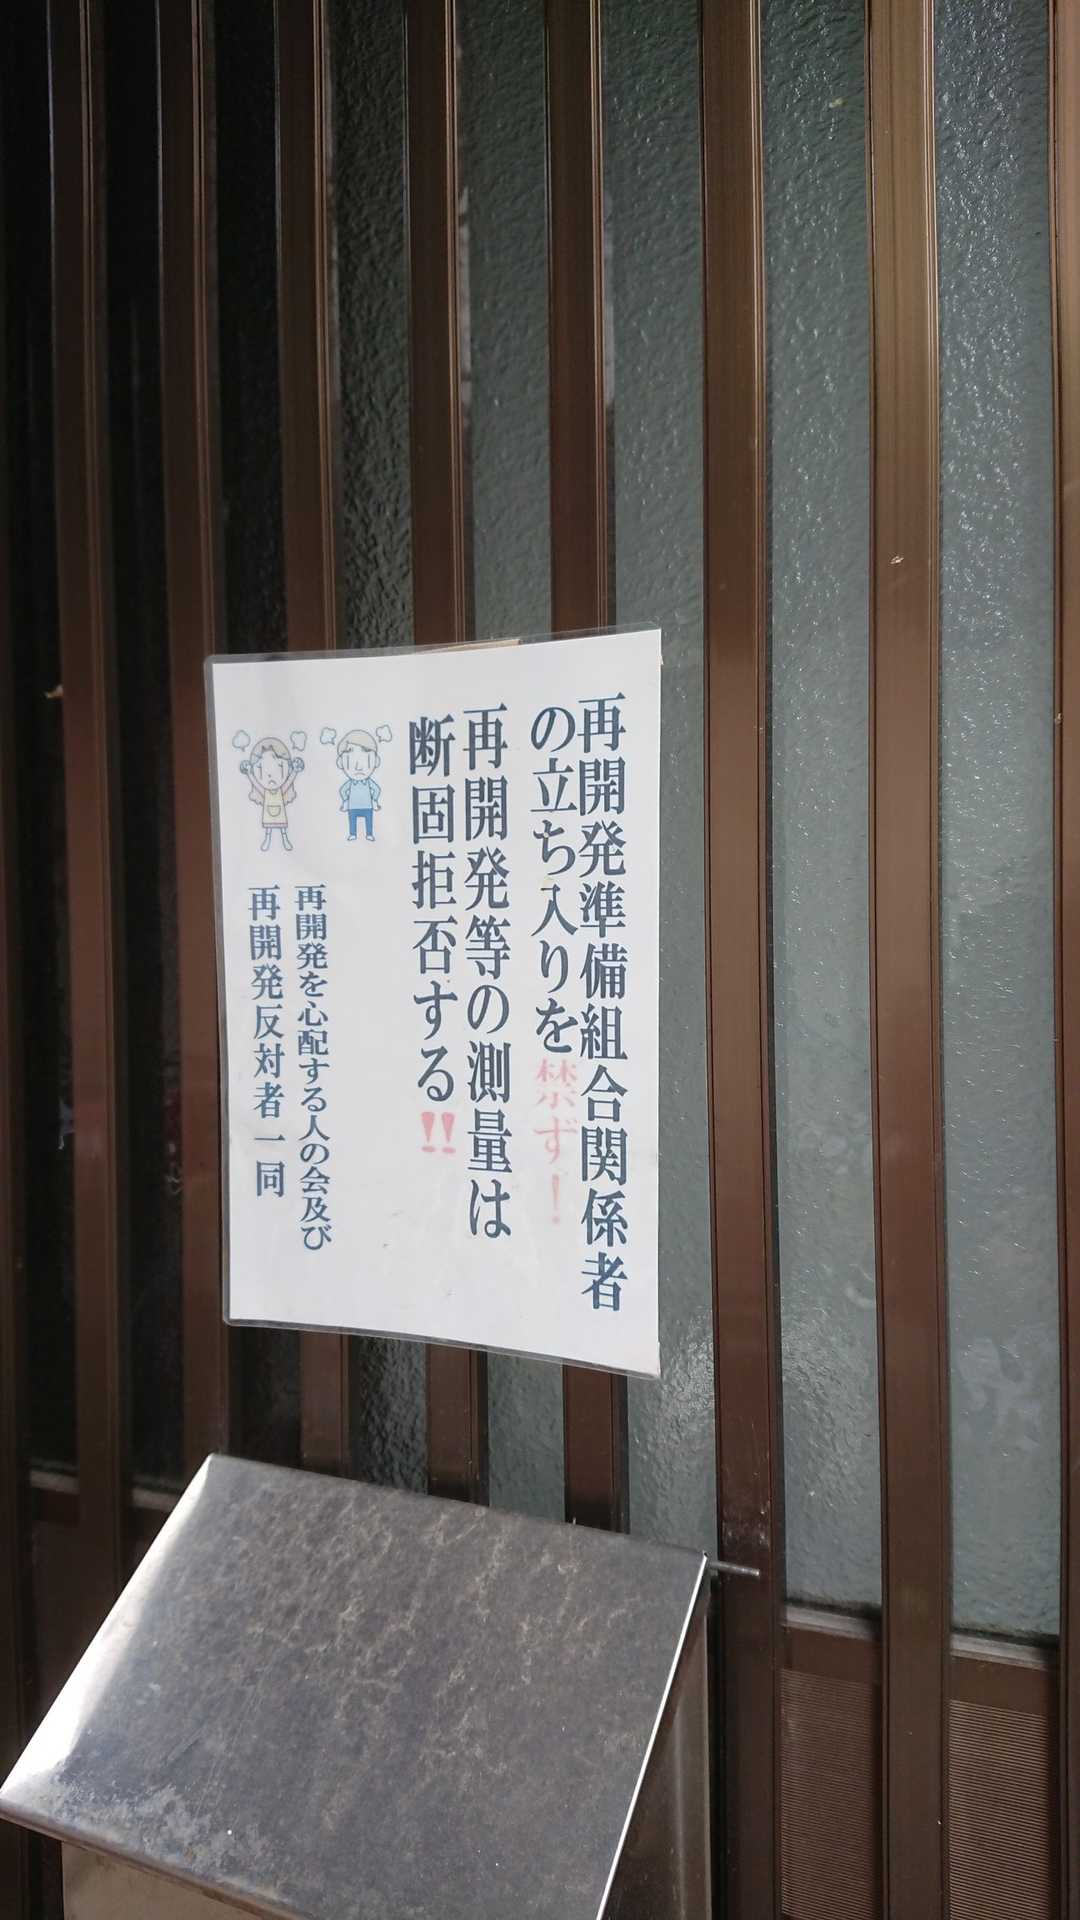 再開発準備組合関係者
の立ち入りを禁ず！
再開発等の測量は
断固拒否する!!
再開発を心配する人の会及び
再開発反対者一同